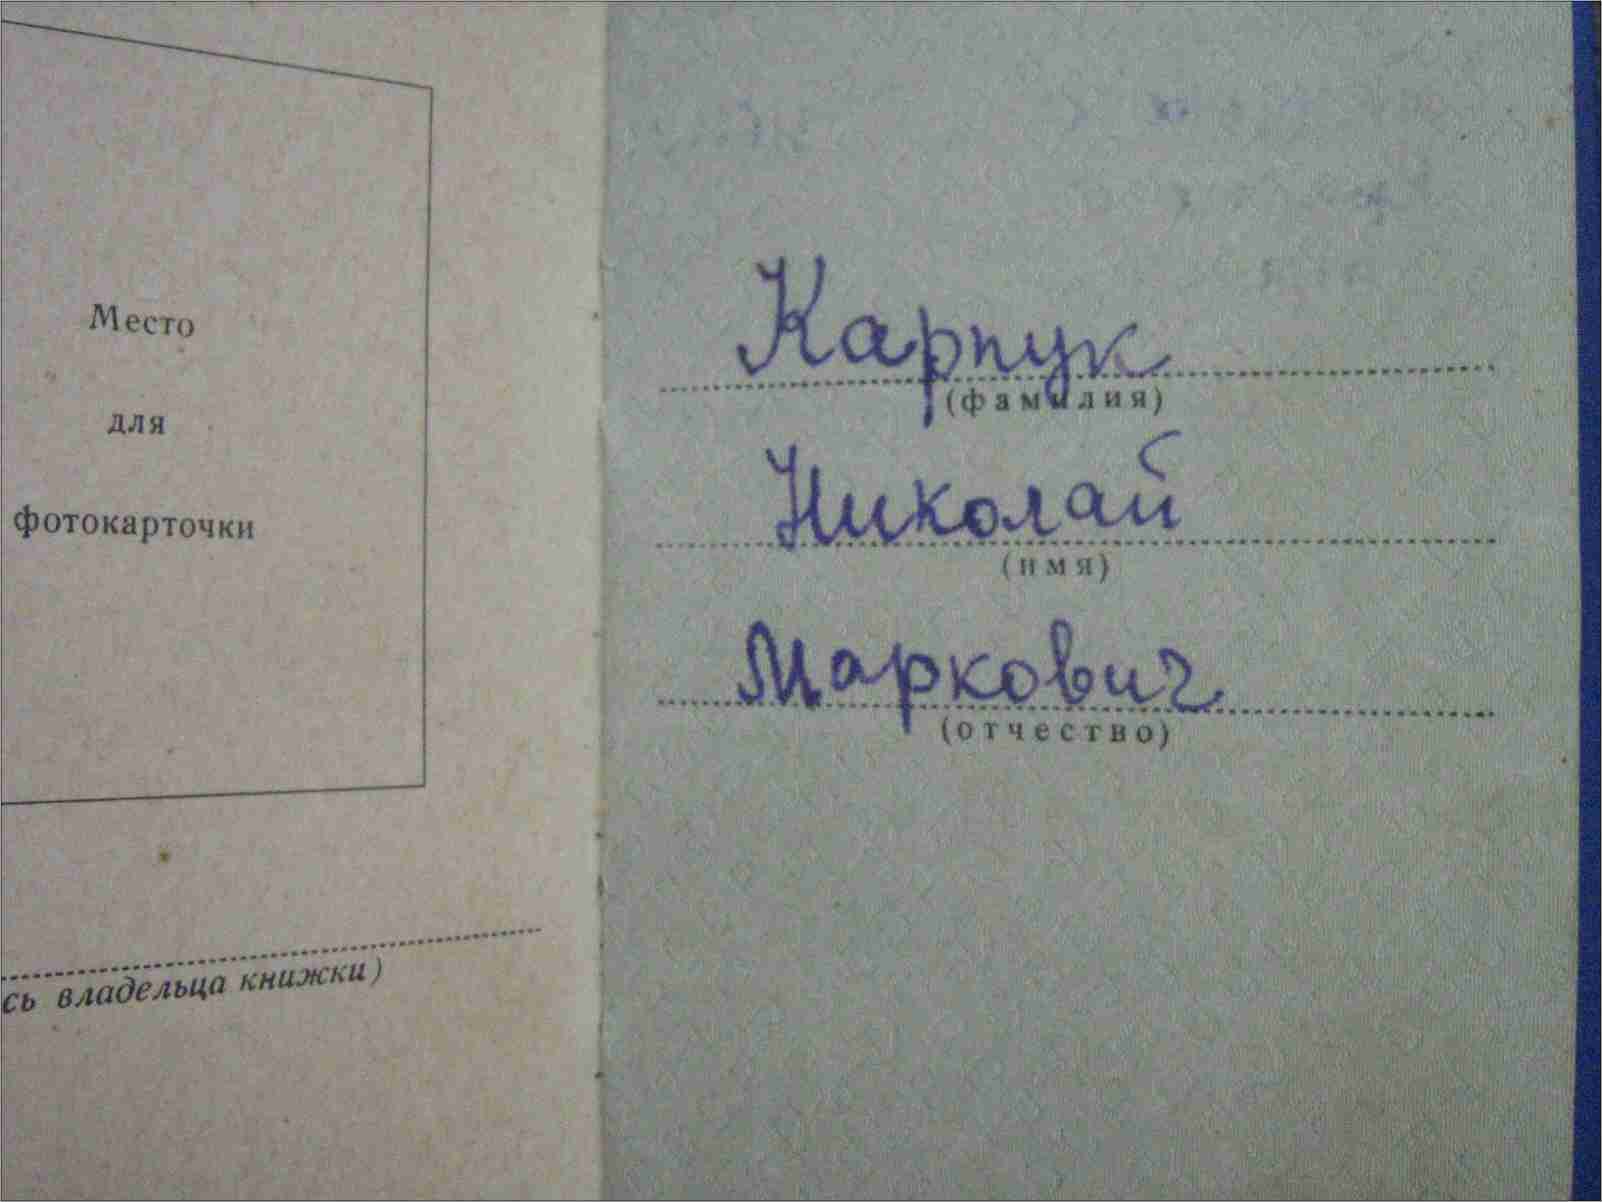 Место
для
фотокарточки
сь владельца книжки)
Карпук
(фамилия)
Николай
(имя)
Маркович
(отчество)